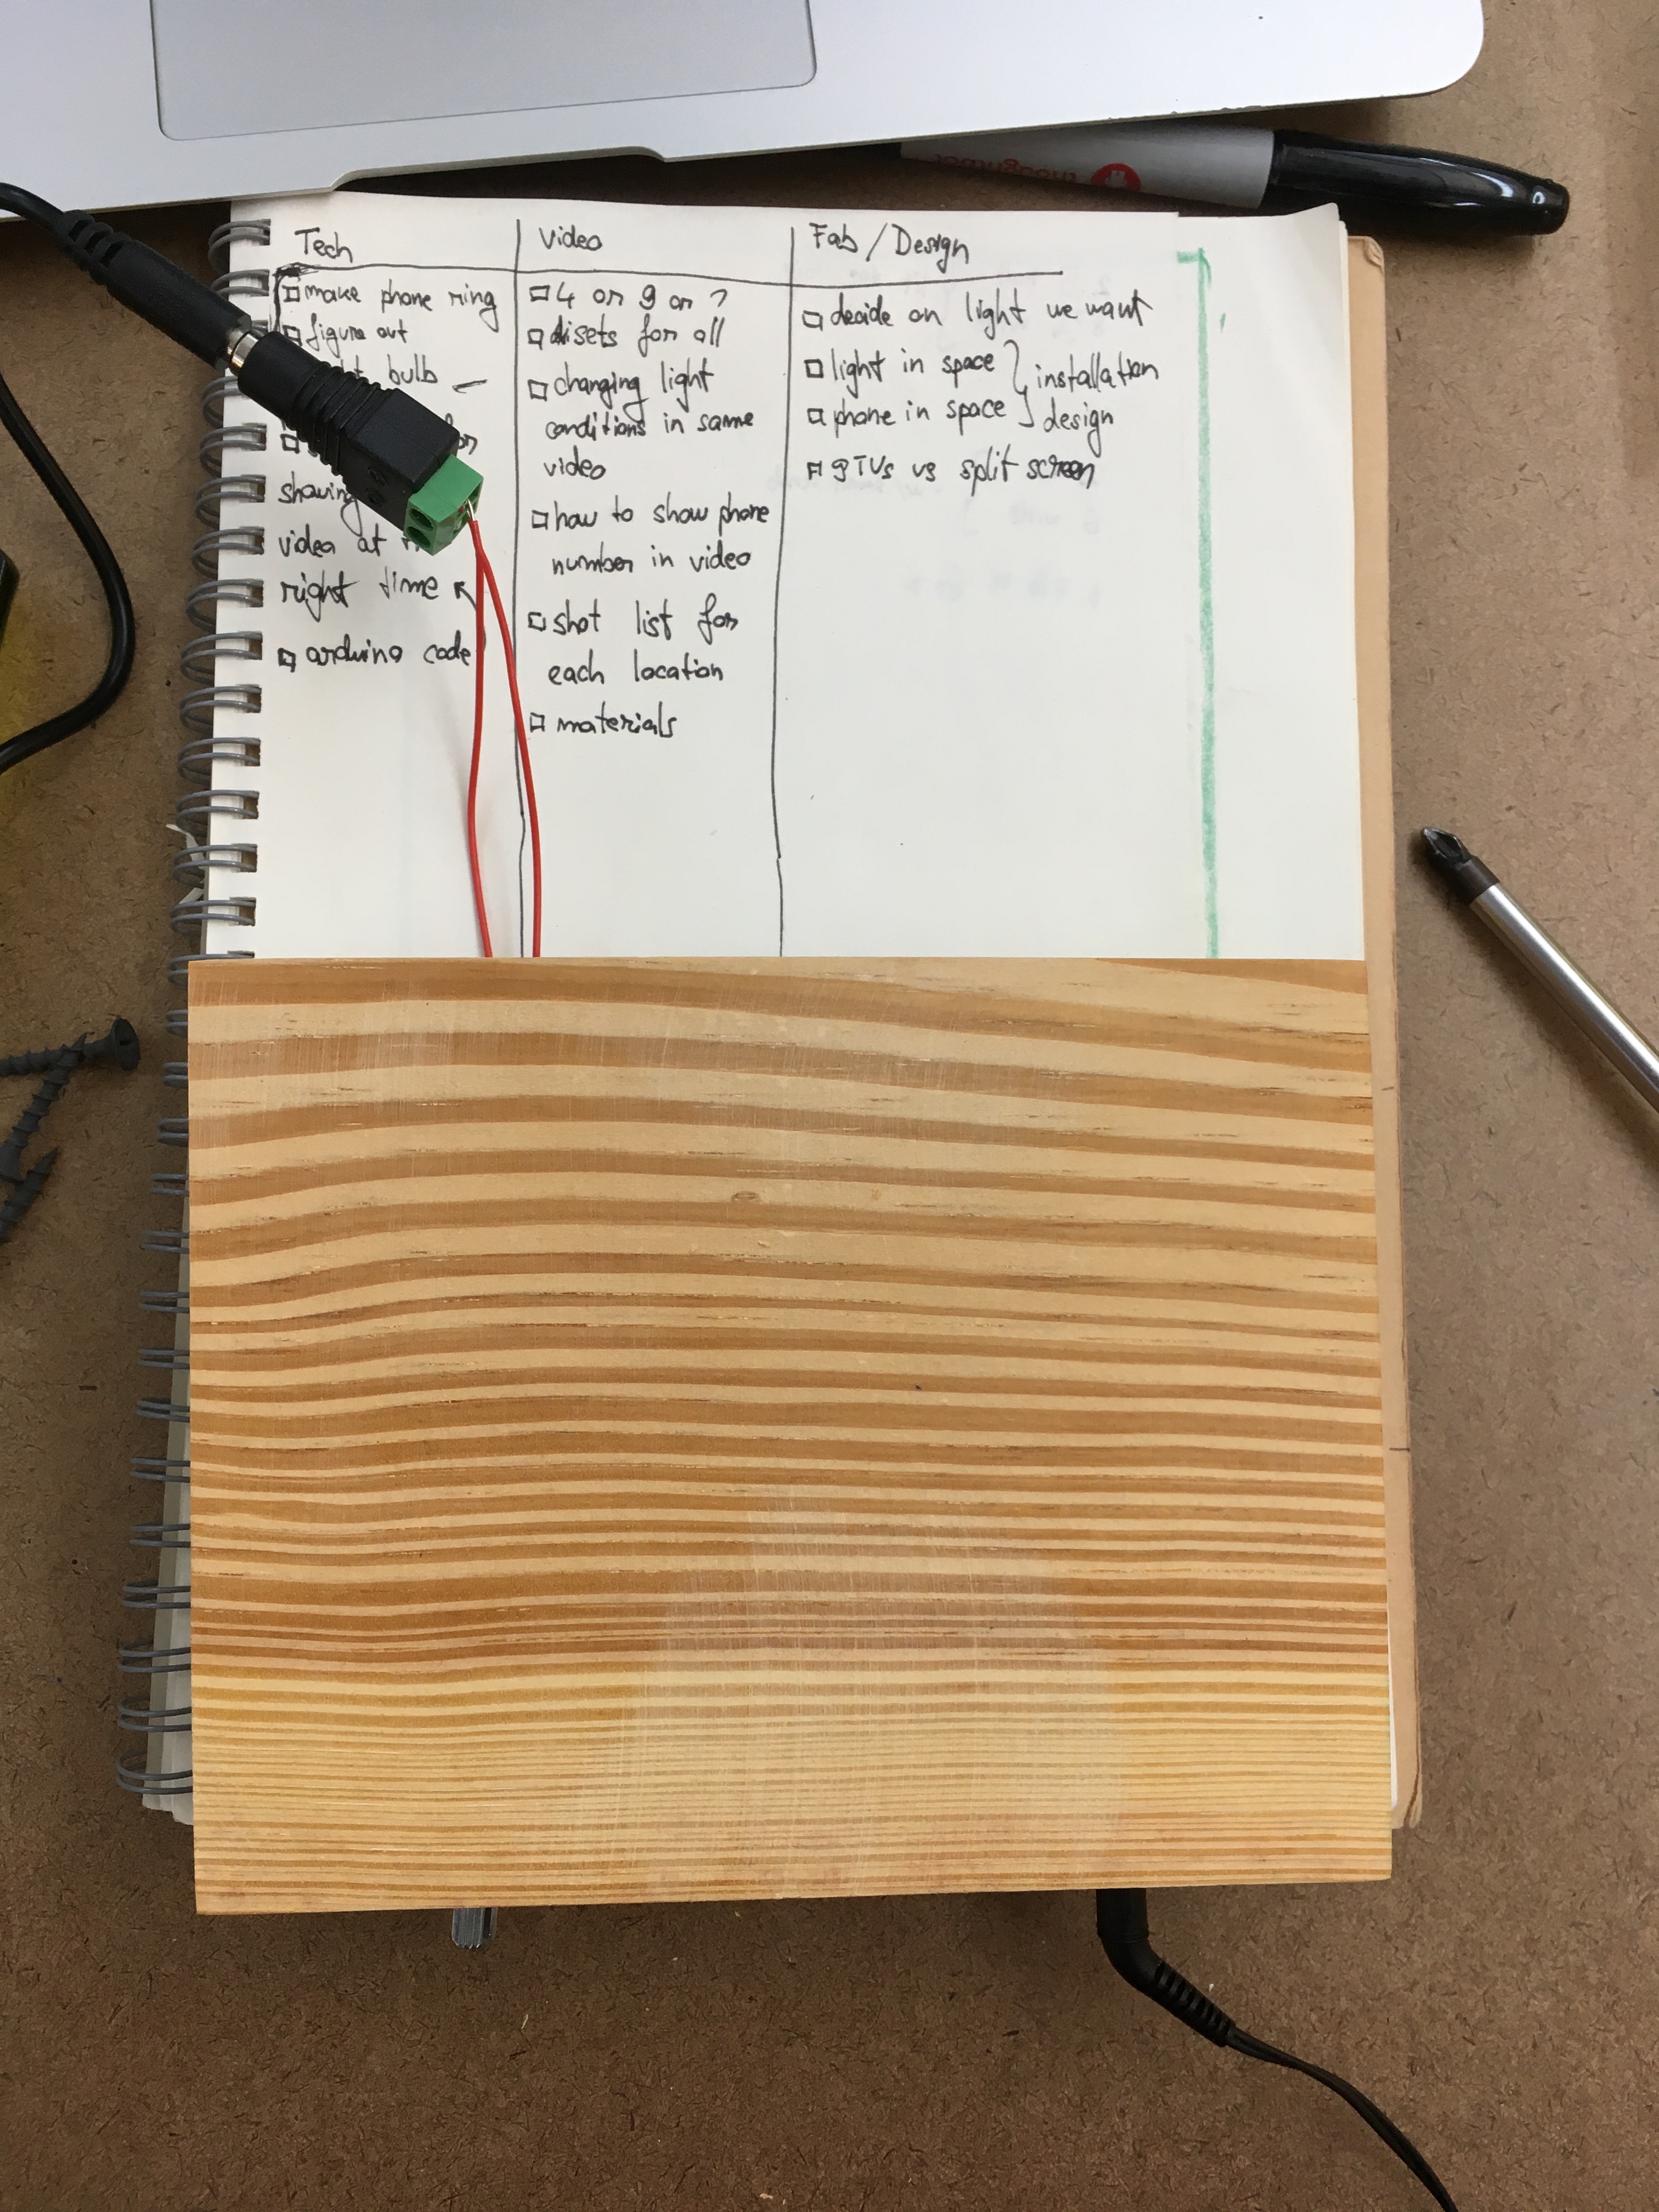 Tech
make phone ring
figure out
bulb
shaving
video at
right time
arduino code
Video
4 or 9 or ?
sets for all
changing light
conditions in same
video
how to show phone
number in video
shot list for
each location
materials
Fab / Design
decide on light we want
light in space
phone in space
installation
design
9 TVs vs split screen